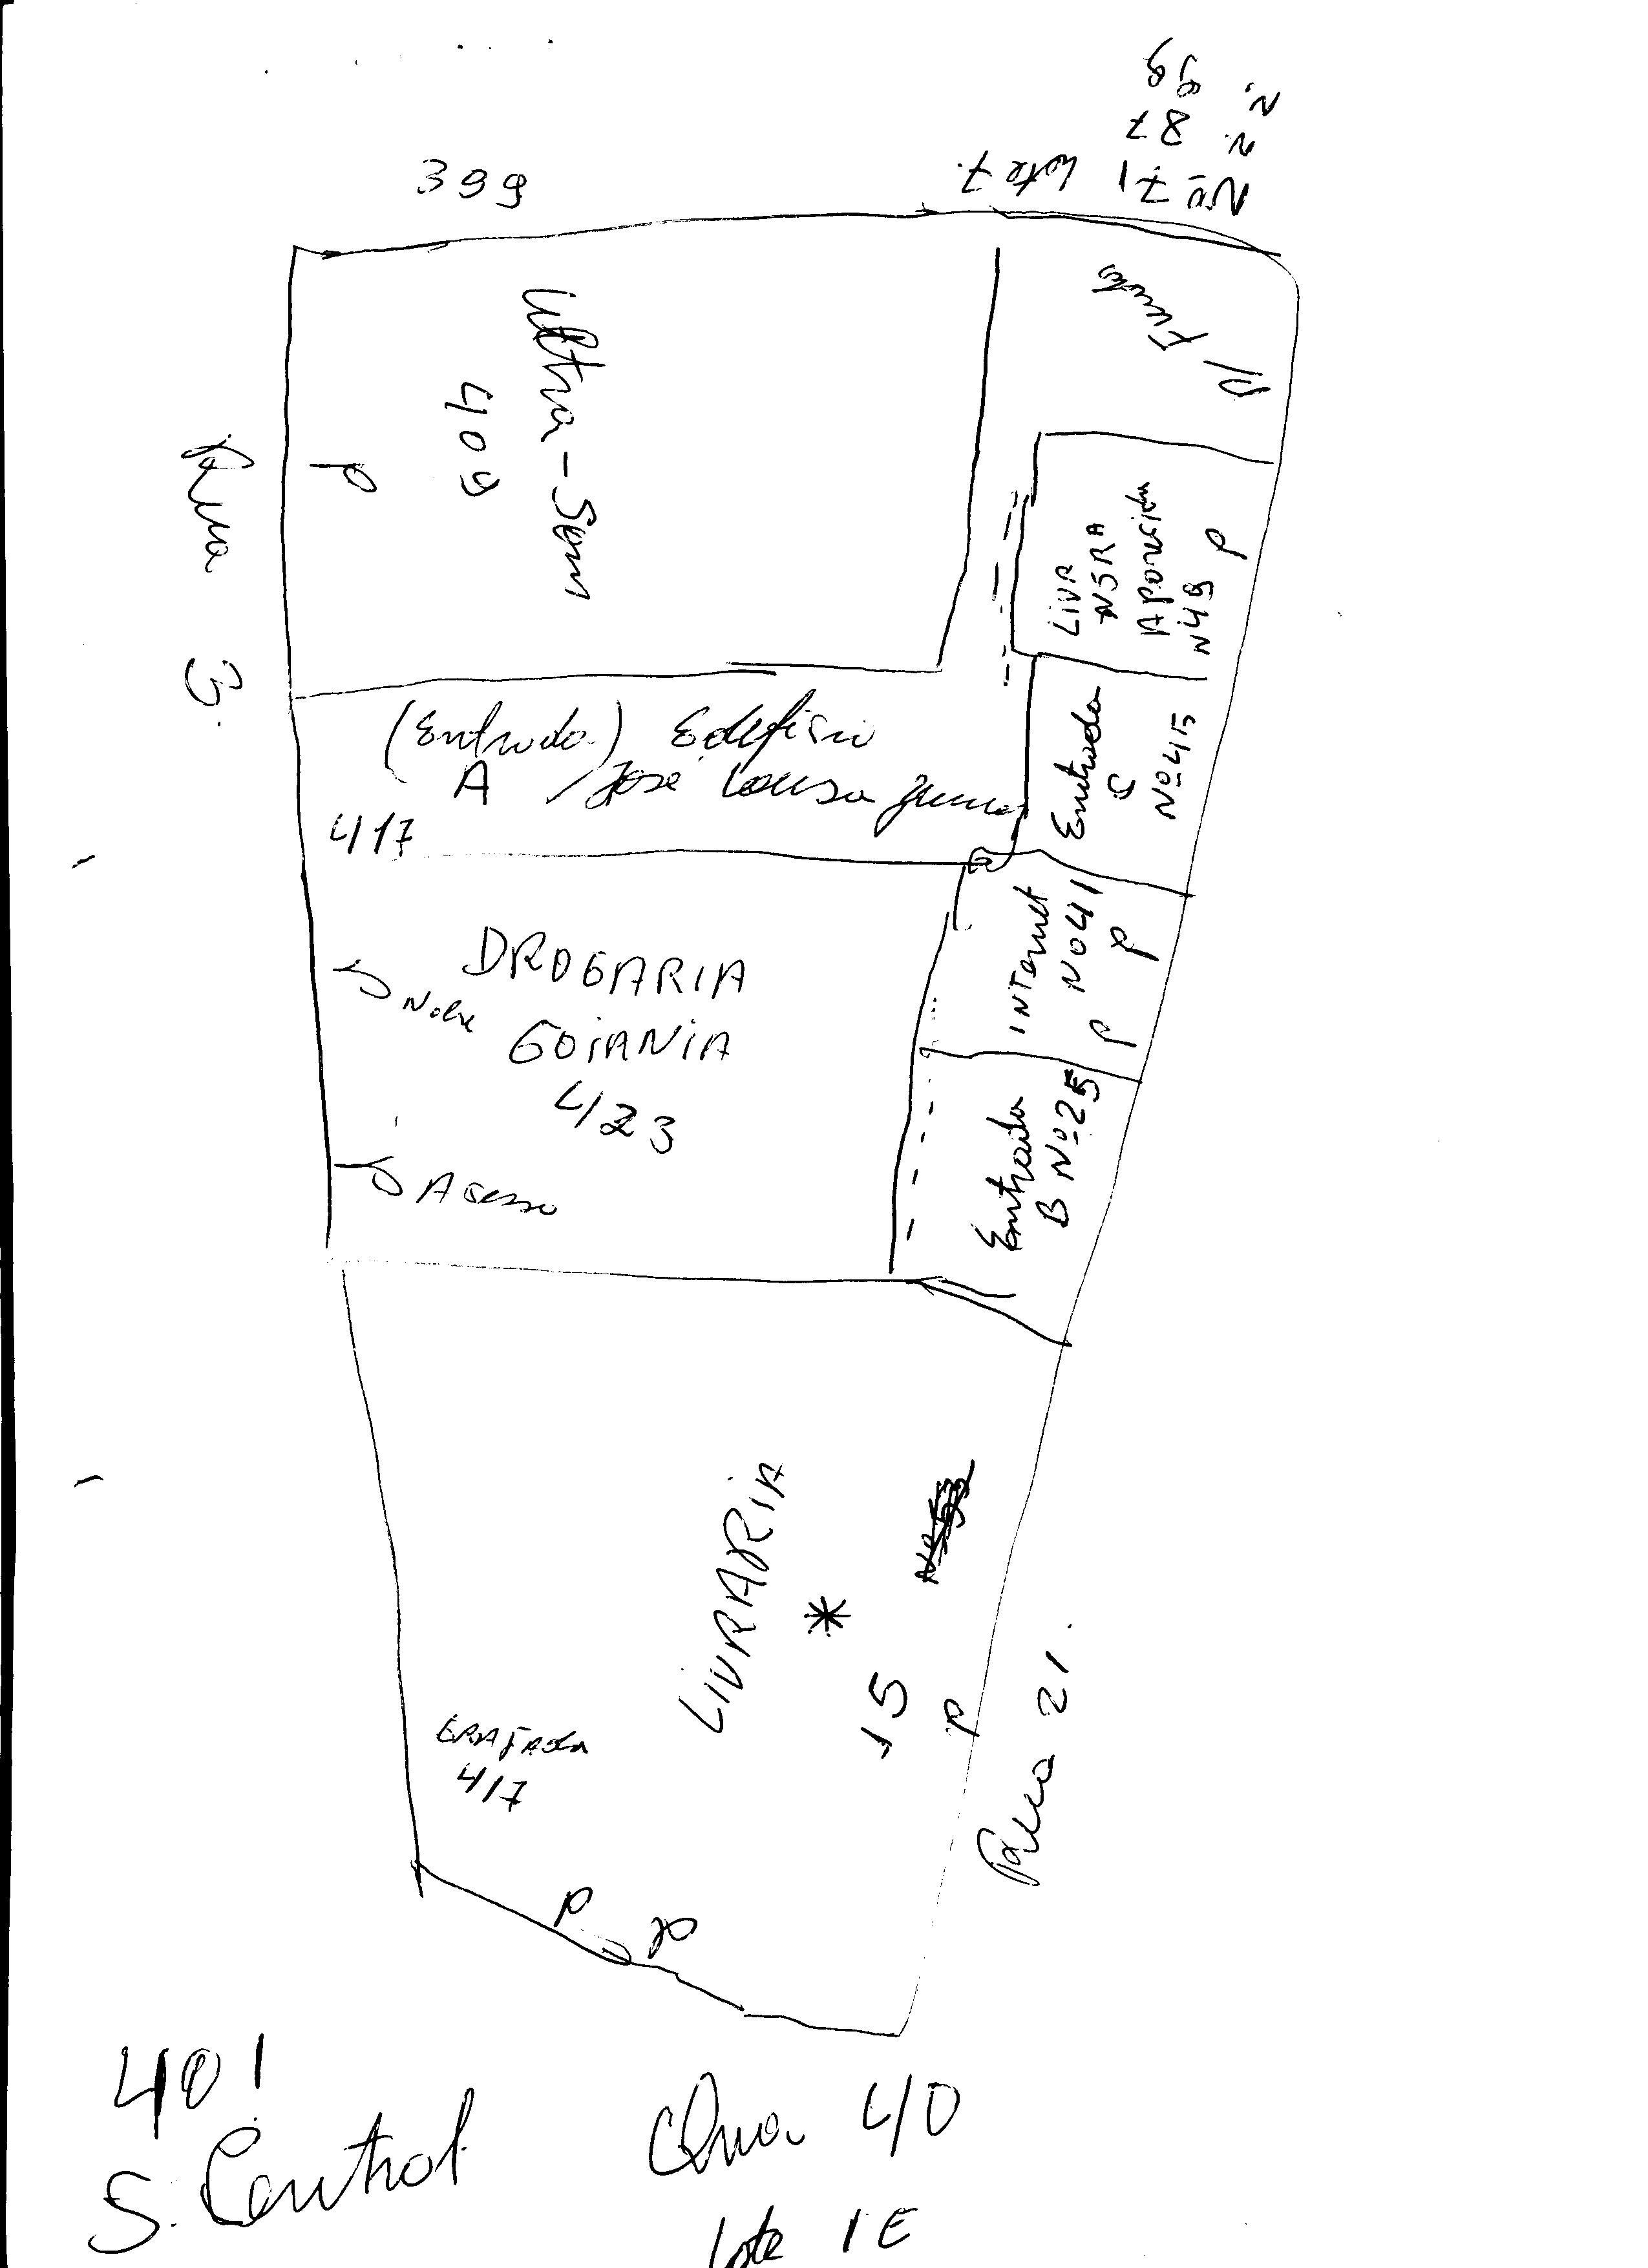 399
Nº 71 Lote 7.
N. 87
N. 99
P/ Fundos
Ultra-Som
409
P
Rua 3.
LIVR
NSRA
Aparecida
N49
P
(Entrada) Edificio
A José Lousa
417
Entrada
C
Nº 45
Internet
Nº 41
P
P
DROGARIA
GOIANIA
423
P
P Acesso
Entrada
B Nº 25
LIVRARIA
*
15
P
Rua 21.
417
P
P
401
S. Central
Qua 40
Lote 1E